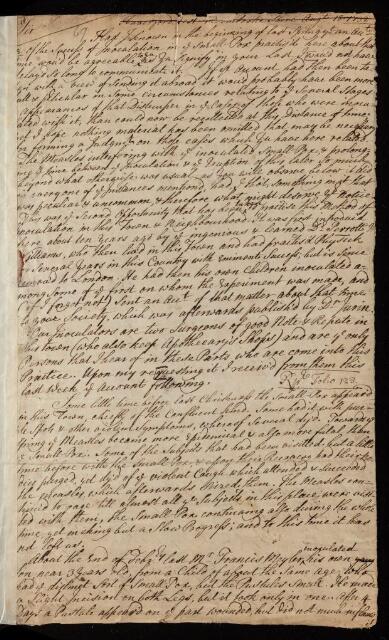 Sir
Had I known in the beginning of last Spring, that an Acct.
of the Success of Inoculation in the Small Pox practis'd here about that
time would be agreeable to you, as you signify in your last, I would not have
delay'd so long to communicate it. If the Account had then been
with a view of sending it abroad it would probably have been more
full & particular in some circumstances relating to the Several Stages
Appearances of that Distemper in the Cases of those who were inocu-
lated with it, than could now be recollected at this Distance of time;
tho' I hope nothing material has been omitted, that may be necessary
in forming a Judgmt. on those cases which I have here related.
The Measles interfering with the inoculated Small Pox & prolong-
ing the time between the Inoculation & the Eruption of this latter so much
beyond what otherwise was usual, as you will observe below I did
in every one of the Instances mention'd, had I thought something in it that
was peculiar & uncommon & therefore what might deserve your notice.
This was the Second Opportunity that has offer'd of practising this Method of
inoculation in this Town & Neighbourhood. It was first introduced
here about ten years ago by the ingenious & learned Dr. Perrott
Williams, who then liv'd in this Town and had practis'd Physick
for Several Years in this Country with eminent Success; but is since
remov'd to London. He had then his own Children inoculated a-
mong some of the first on whom the Experiment was made, and
(if I forget not) Sent an Acct. of that matter about that time
to your Society, which was afterwards publish'd by Dr. Jurin.
Our Inoculators are two Surgeons of good Note & Repute in
this town (who also keep Apothecarys Shops) and are the only
Persons that I hear of in these Parts who are come into this
Practice. Upon my requesting it I receiv'd from them this
last Week the Account following.
Vide Folio 123.
Some little time before last Christmass the Small Pox appeared
in this Town, chiefly of the Confluent kind. Some had it with pur-
ple Spots & other violent Symptoms, whereof Several dy'd. Towards the
Spring the Measles became more Epidemical & also more fatal than
the Small Pox. Some of the Subjects that had been visited but a little
time before with the Small Pox, & upon their Recovery had their bo-
dies purged, yet dy'd of the violent Cough which attended & succeeded
the Measles, which afterwards Seized them. The Measles con-
tinued to rage till almost all the Subjects in this place were visit-
ed with them, the Small Pox continuing also during the whole
time, yet making but a slow Progress; and to this time it has
not left us.
About the End of Febry. last Mr. Francis Meyler inoculated his own
son near 3 years old, from a Child of about the Same age, who
had a distinct Sort of Small Pox, but the Pustules Small. He made
a slight Incision on both Legs, but it took only in one. After 4
days a Pustule appeared on the part wounded, but did not much inflame